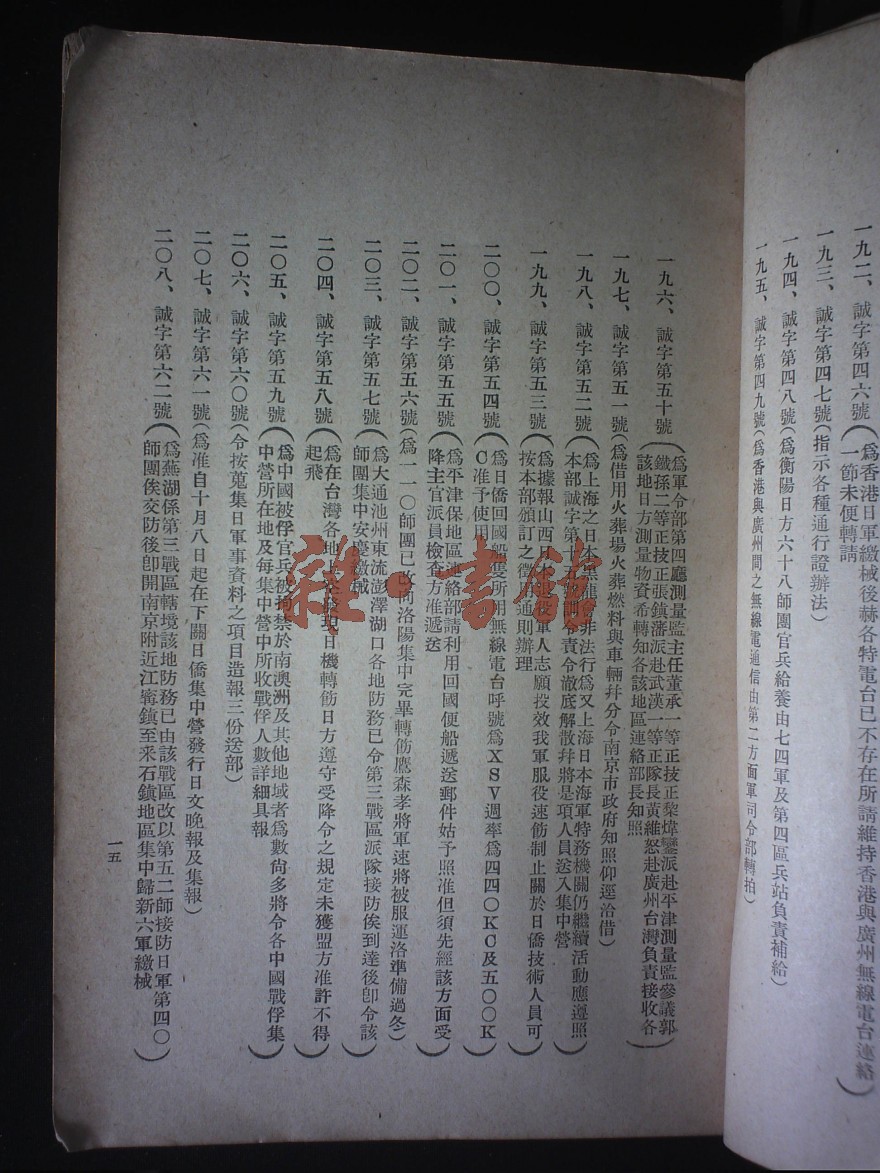 一九二、誠字第四六號（爲香港日軍繳械後赫各特電台已不存在所請維持香港與廣州無線電台連絡
一節未便轉請）
一九三、誠字第四七號（指示各種通行證辦法）
一九四、誠字第四八號（爲衡陽日方六十八師團官兵給養由七四軍及第四區兵站負責補給）
一九五、誠字第四九號（爲香港與廣州間之無線電通信由第二方面軍司令部轉拍）
一九六、誠字第五十號（爲軍令部第四廳測量監主任董承一等正技正黎煒鑾派赴平津測量監參議郭
鐵孫二等正技正張鎮藩派赴武漢一等正隊長黃維恕赴廣州台灣負責接收各
該地日方測量物資希轉知各該地區連絡部長知照）
一九七、誠字第五一號（爲借用火葬場火葬燃料與車輛幷分令南京市政府知照仰逕洽借）
一九八、誠字第五二號（爲上海之日本黑龍會非法行爲又上海日本海軍特務機關仍繼續活動應遵照
本部誠字第十五號訓令責令澈底解散幷將是項人員送入集中營）
一九九、誠字第五三號（爲據報山西日退役軍人志願投效我軍服役速飭制止關於日僑技術人員可
按本部頒訂之徵用通則辦理）
二〇〇、誠字第五四號（爲日僑回國船隻所用無線電台呼號爲XSV週率爲四四〇KC及五〇〇K
C准予使用）
二〇一、誠字第五五號（爲平津保地區連絡部請利用回國便船遞送郵件姑予照准但須先經該方面受
降主官派員檢查方准遞送）
二〇二、誠字第五六號（爲一一〇師團已改向洛陽集中完畢轉飭鷹森孝將軍速將被服運洛準備過冬）
二〇三、誠字第五七號（爲大通池州東流彭澤湖口各地防務已令第三戰區派隊接防俟到達後卽令該
師團集中安慶繳械）
二〇四、誠字第五八號（爲在台灣各地日機轉飭日方遵守受降令之規定未獲盟方准許不得
起飛）
二〇五、誠字第五九號（爲中國被俘官兵被拘禁於南澳洲及其他地域者爲數尙多將令各中國戰俘集
中營所在地及每集中營中所收戰俘人數詳細具報）
二〇六、誠字第六〇號（令按蒐集日軍事資料之項目造報三份送部）
二〇七、誠字第六一號（爲准自十月八日起在下關日僑集中營發行日文晚報及集報）
二〇八、誠字第六二號（爲蕪湖係第三戰區轄境該地防務已由該戰區改以第五二師接防日軍第四〇
師團俟交防後卽開南京附近江甯鎮至采石鎮地區集中歸新六軍繳械）
一五
雜·書館